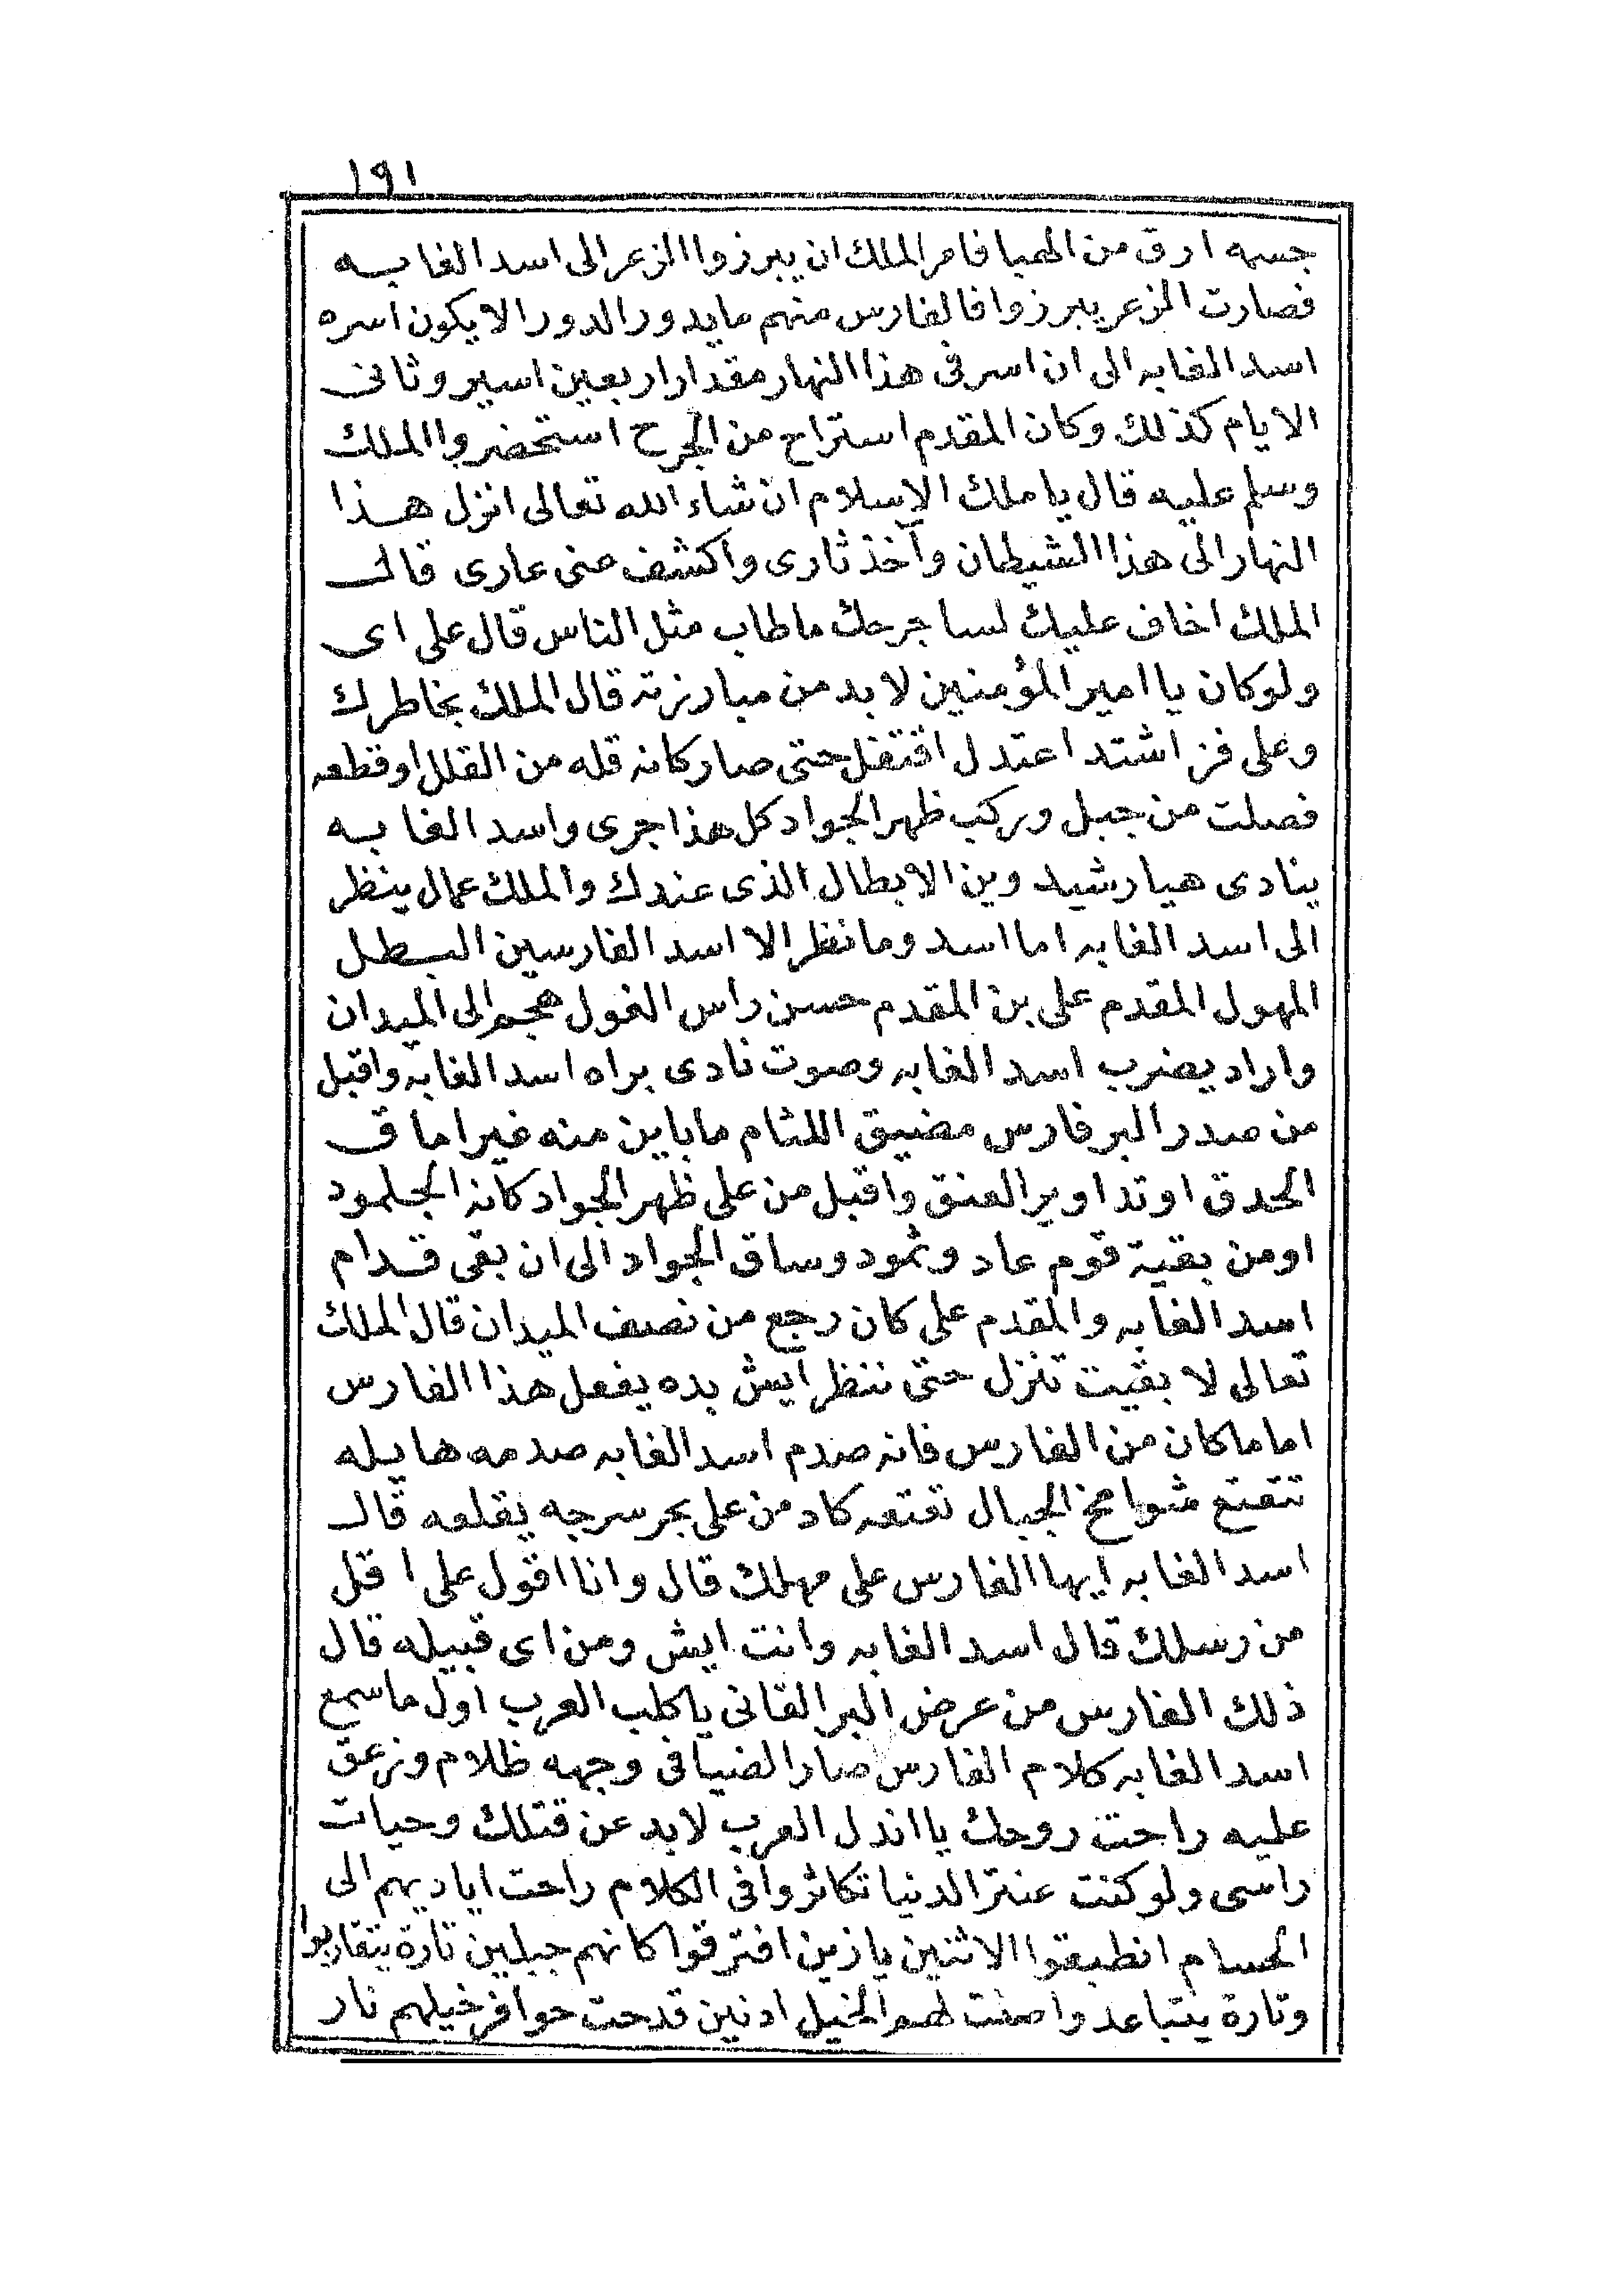 ١٩١
جسمه ارق من الهبا فامر الملك ان يبرزوا الزعر الى اسد الغابه
فصارت الزعر يبرزوا فالفارس منهم ما يدور الدور الا يكون اسره
اسد الغابه الى ان اسر فى هذا النهار مقدار اربعين اسير وثانى
الايام كذلك وكان المقدم استراح من الجرح استحضروا الملك
وسلم عليه قال يا ملك الاسلام ان شاء الله تعالى انزل هذا
النهار الى هذا الشيطان وآخذ ثارى واكشف عنى عارى قال
الملك اخاف عليك لسا جرحك ما طاب مثل الناس قال على اى
ولو كان يا امير المؤمنين لا بد من مبارزته قال الملك بخاطرك
وعلى فز اشتد اعتدل اقتفل حتى صار كانه قله من القلل او قطعه
فصلت من جبل وركب ظهر الجواد كل هذا جرى واسد الغابه
ينادى هيا رشيد وين الابطال الذى عندك والملك عمال ينظر
الى اسد الغابه اما اسد وما نظر الا اسد الفارسين البطل
المهول المقدم على بن المقدم حسن راس الغول هجم الى الميدان
واراد يضرب اسد الغابه وصوت نادى براه اسد الغابه واقبل
من صدر البر فارس مضيق اللثام ما باين منه غير اماق
الحدق او تداوير العنق واقبل من على ظهر الجواد كانه الجلمود
او من بقية قوم عاد وثمود وساق الجواد الى ان بقى قدام
اسد الغابه والمقدم على كان رجع من نصف الميدان قال الملك
تعالى لا بقيت تنزل حتى ننظر ايش بده يفعل هذا الفارس
اما ما كان من الفارس فانه صدم اسد الغابه صدمه هايله
تتقتع شوامخ الجبال تقتعه كاد من على بحر سرجه يقلعه قال
اسد الغابه ايها الفارس على مهلك قال وانا اقول على اقل
من رسلك قال اسد الغابه وانت ايش ومن اى قبيله قال
ذلك الفارس من عرض البر القانى يا كلب العرب اول ما سمع
اسد الغابه كلام الفارس صار الضيا فى وجهه ظلام وزعق
عليه راحت روحك يا اندل العرب لا بد عن قتلك وحيات
راسى ولو كنت عنتر الدنيا تكاثروا فى الكلام راحت اياديهم الى
الحسام انطبقوا الاثنين يا زين افترقوا كانهم جبلين تارة يتقاربوا
وتارة يتباعدوا صنت لهم الخيل ادنين قدحت حوافر خيلهم نار